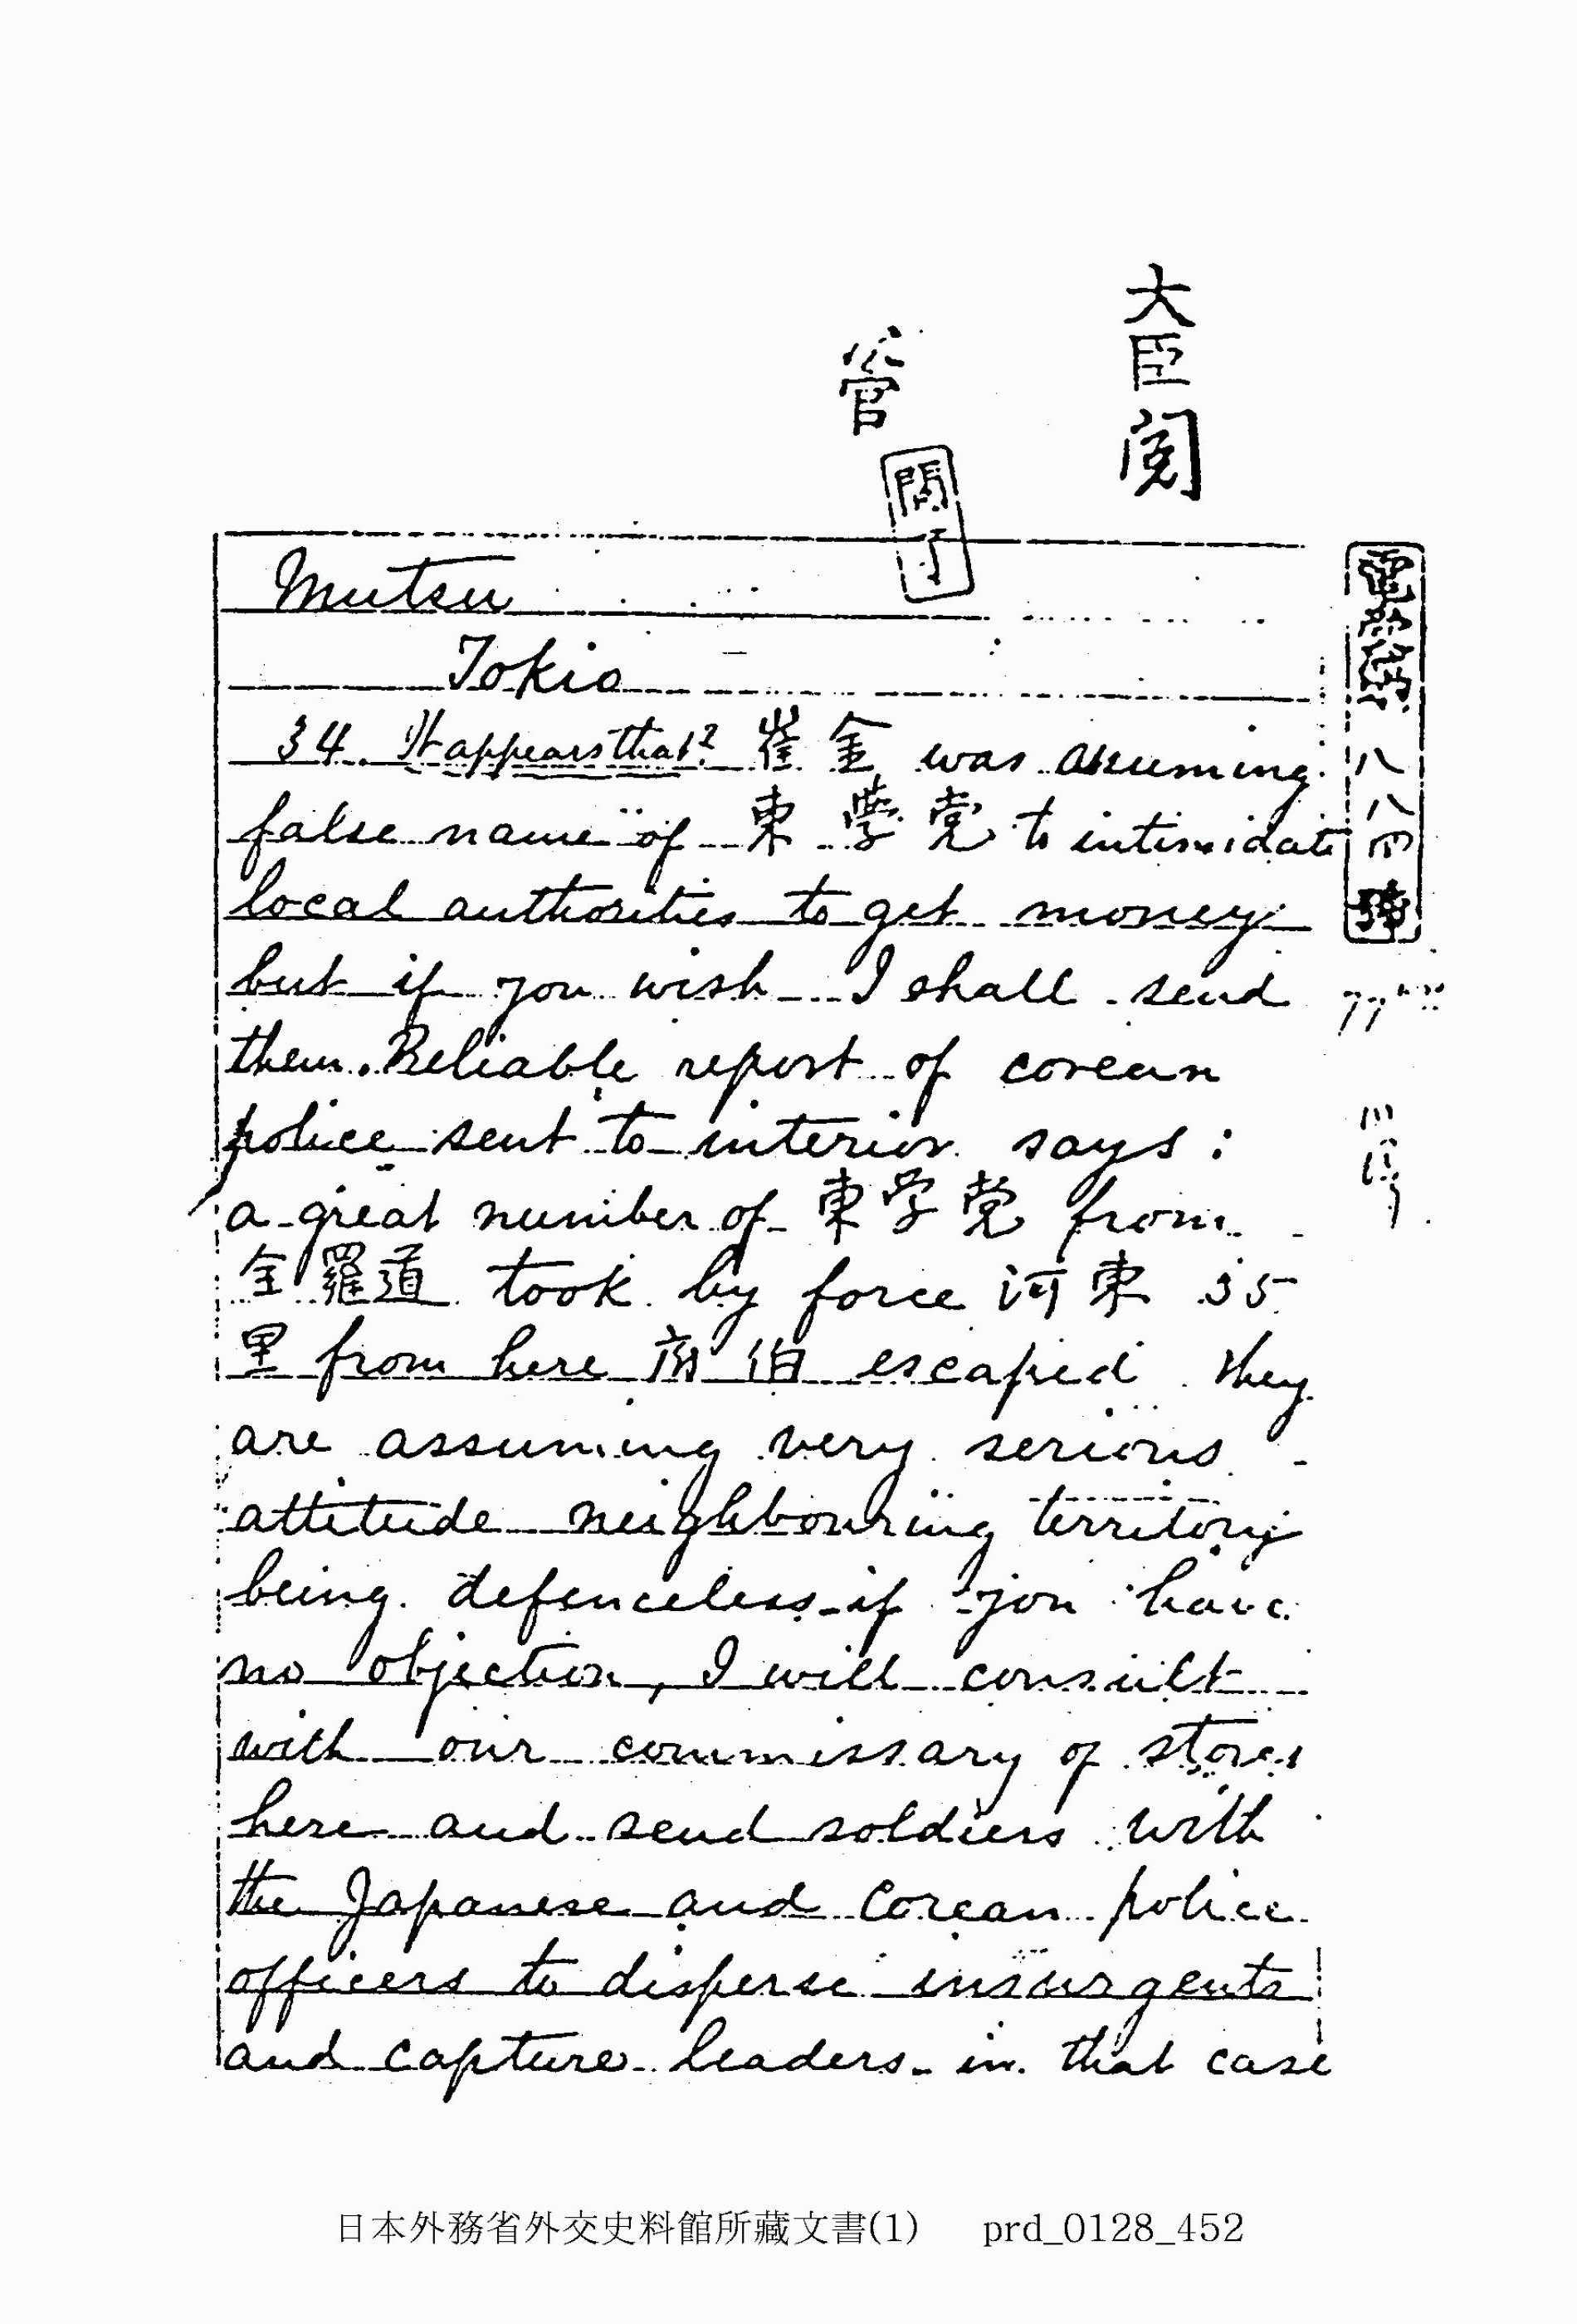 大臣閲
管
閲了
Mutsu
Tokio
34. It appears that? 崔 金 was assuming
false name of 東 學 党 to intimidate
local authorities to get money
but if you wish I shall send
them. Reliable report of corean
police sent to interior says:
a great number of 東学党 from
全羅道 took by force 河東 35
里 from here 府伯 escaped they
are assuming very serious
attitude neighbouring territory
being defenceless - if you have
no objection, I will consult
with our commissary of stores
here and send soldiers with
the Japanese and Corean police
officers to disperse insurgents
and capture leaders - in that case
電 八八四 號
日本外務省外交史料館所藏文書(1) prd_0128_452